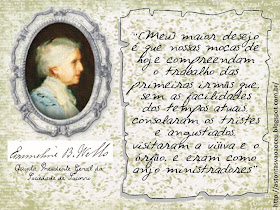 "Meu maior desejo
é que nossas moças de
hoje compreendam
o trabalho das
primeiras irmãs que,
sem as facilidades
dos tempos atuais,
consolaram os tristes
e angustiados,
visitaram a viúva e o
órfão, e eram como
anjo ministradores"
Emmeline B. Wells
Quinta Presidente Geral da
Sociedade de Socorro